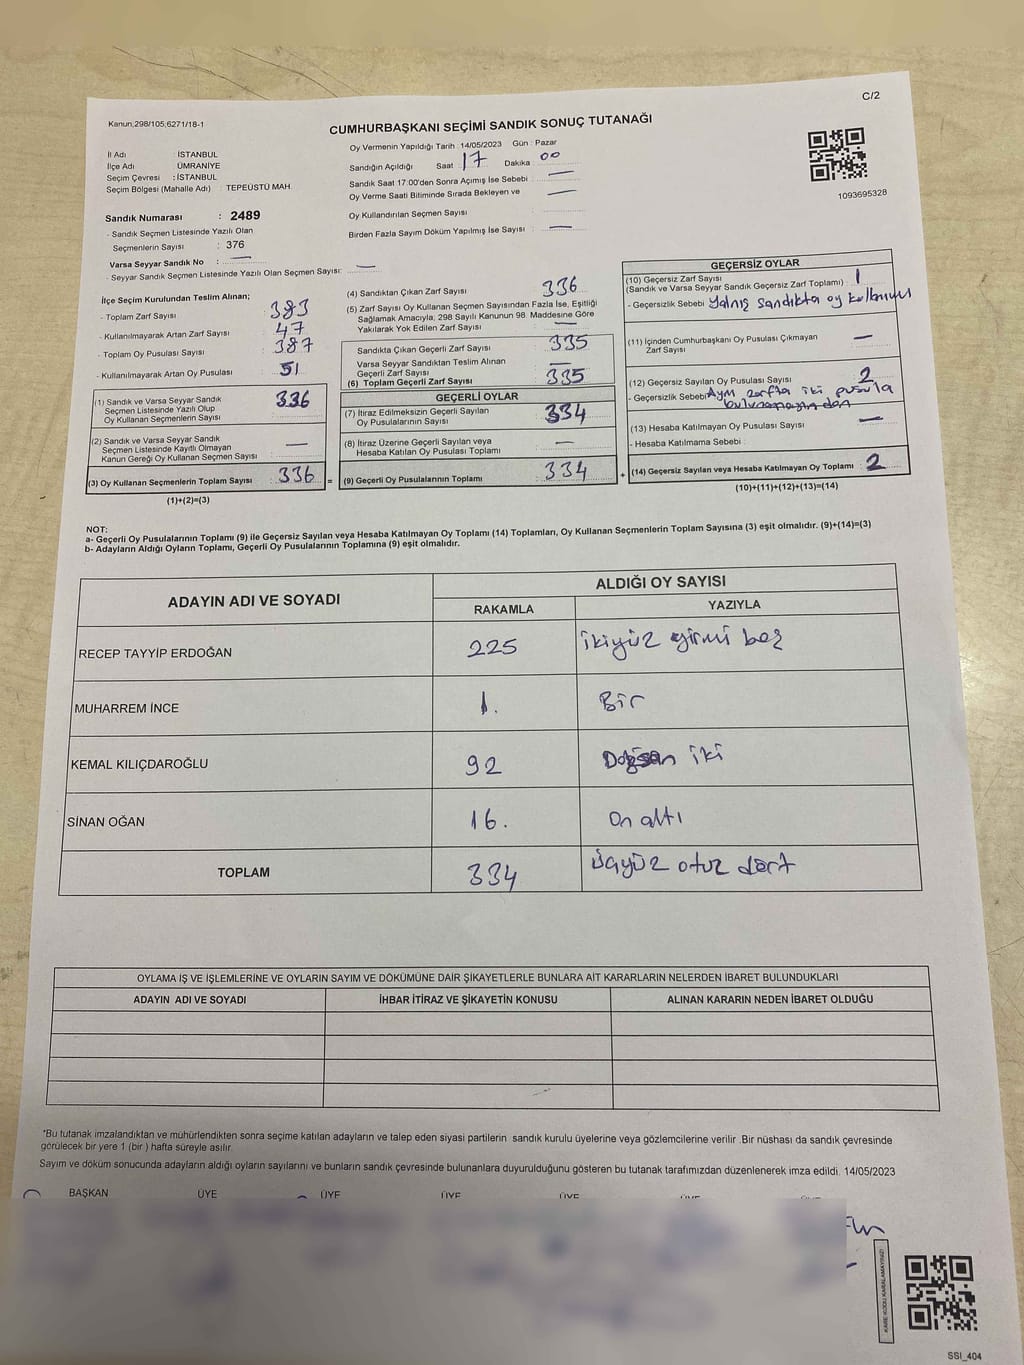 C/2
Kanun;298/105;6271/18-1
CUMHURBAŞKANI SEÇİMİ SANDIK SONUÇ TUTANAĞI
İl Adı : İSTANBUL
İlçe Adı : ÜMRANİYE
Seçim Çevresi : İSTANBUL
Seçim Bölgesi (Mahalle Adı) : TEPEÜSTÜ MAH.
Oy Vermenin Yapıldığı Tarih : 14/05/2023 Gün : Pazar
Sandığın Açıldığı Saat : 17 Dakika : 00
Sandık Saat 17:00'den Sonra Açımış İse Sebebi : —
Oy Verme Saati Bitiminde Sırada Bekleyen ve —
Oy Kullandırılan Seçmen Sayısı :
Birden Fazla Sayım Döküm Yapılmış İse Sayısı : —
1093695328
Sandık Numarası : 2489
- Sandık Seçmen Listesinde Yazılı Olan
Seçmenlerin Sayısı : 376
Varsa Seyyar Sandık No : —
- Seyyar Sandık Seçmen Listesinde Yazılı Olan Seçmen Sayısı: —
İlçe Seçim Kurulundan Teslim Alınan;
- Toplam Zarf Sayısı : 383
- Kullanılmayarak Artan Zarf Sayısı : 47
- Toplam Oy Pusulası Sayısı : 387
- Kullanılmayarak Artan Oy Pusulası : 51
(1) Sandık ve Varsa Seyyar Sandık
Seçmen Listesinde Yazılı Olup
Oy Kullanan Seçmenlerin Sayısı : 336
(2) Sandık ve Varsa Seyyar Sandık
Seçmen Listesinde Kayıtlı Olmayan
Kanun Gereği Oy Kullanan Seçmen Sayısı : —
(3) Oy Kullanan Seçmenlerin Toplam Sayısı : 336 =
(1)+(2)=(3)
(4) Sandıktan Çıkan Zarf Sayısı : 336
(5) Zarf Sayısı Oy Kullanan Seçmen Sayısından Fazla İse, Eşitliği
Sağlamak Amacıyla; 298 Sayılı Kanunun 98. Maddesine Göre
Yakılarak Yok Edilen Zarf Sayısı : —
Sandıkta Çıkan Geçerli Zarf Sayısı : 335
Varsa Seyyar Sandıktan Teslim Alınan
Geçerli Zarf Sayısı : —
(6) Toplam Geçerli Zarf Sayısı : 335
GEÇERLİ OYLAR
(7) İtiraz Edilmeksizin Geçerli Sayılan
Oy Pusulalarının Sayısı : 334
(8) İtiraz Üzerine Geçerli Sayılan veya
Hesaba Katılan Oy Pusulası Toplamı : —
(9) Geçerli Oy Pusulalarının Toplamı : 334 +
GEÇERSİZ OYLAR
(10) Geçersiz Zarf Sayısı : 1
(Sandık ve Varsa Seyyar Sandık Geçersiz Zarf Toplamı)
- Geçersizlik Sebebi : Yalnış sandıkta oy kullanımı
(11) İçinden Cumhurbaşkanı Oy Pusulası Çıkmayan
Zarf Sayısı : —
(12) Geçersiz Sayılan Oy Pusulası Sayısı : 2
- Geçersizlik Sebebi : Aynı zarfta iki pusula
(13) Hesaba Katılmayan Oy Pusulası Sayısı : —
- Hesaba Katılmama Sebebi :
(14) Geçersiz Sayılan veya Hesaba Katılmayan Oy Toplamı : 2
(10)+(11)+(12)+(13)=(14)
NOT:
a- Geçerli Oy Pusulalarının Toplamı (9) ile Geçersiz Sayılan veya Hesaba Katılmayan Oy Toplamı (14) Toplamları, Oy Kullanan Seçmenlerin Toplam Sayısına (3) eşit olmalıdır. (9)+(14)=(3)
b- Adayların Aldığı Oyların Toplamı, Geçerli Oy Pusulalarının Toplamına (9) eşit olmalıdır.
ADAYIN ADI VE SOYADI
ALDIĞI OY SAYISI
RAKAMLA YAZIYLA
RECEP TAYYİP ERDOĞAN 225 ikiyüz yirmi beş
MUHARREM İNCE 1. Bir
KEMAL KILIÇDAROĞLU 92 Doksan iki
SİNAN OĞAN 16. On altı
TOPLAM 334 üçyüz otuz dört
OYLAMA İŞ VE İŞLEMLERİNE VE OYLARIN SAYIM VE DÖKÜMÜNE DAİR ŞİKAYETLERLE BUNLARA AİT KARARLARIN NELERDEN İBARET BULUNDUKLARI
ADAYIN ADI VE SOYADI İHBAR İTİRAZ VE ŞİKAYETİN KONUSU ALINAN KARARIN NEDEN İBARET OLDUĞU
*Bu tutanak imzalandıktan ve mühürlendikten sonra seçime katılan adayların ve talep eden siyasi partilerin sandık kurulu üyelerine veya gözlemcilerine verilir .Bir nüshası da sandık çevresinde
görülecek bir yere 1 (bir ) hafta süreyle asılır.
Sayım ve döküm sonucunda adayların aldığı oyların sayılarını ve bunların sandık çevresinde bulunanlara duyurulduğunu gösteren bu tutanak tarafımızdan düzenlenerek imza edildi. 14/05/2023
BAŞKAN ÜYE ÜYE ÜYE ÜYE ÜYE ÜYE
KARE KODU KARALAMAYINIZ!
SSI_404